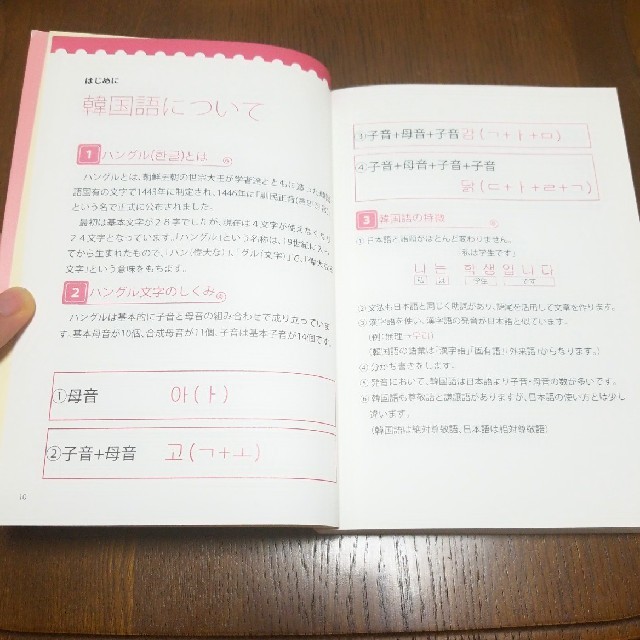 はじめに
韓国語について
1 ハングル(한글)とは
ハングルとは、朝鮮王朝の世宗大王が学者達とともに造った韓国
語固有の文字で1443年に制定され、1446年に「訓民正音
という名で正式に公布されました。
最初は基本文字が28字でしたが、現在は4文字が使えなくなり
24文字となっています。「ハングル」という名称は、19世紀に入っ
てから生まれたもので、「ハン(偉大な)」、「グル(文字)」で、「偉大なる
文字」という意味をもちます。
2 ハングル文字のしくみ
ハングルは基本的に子音と母音の組み合わせで成り立っていま
す。基本母音が10個、合成母音が11個、子音は基本子音が14個です。
①母音 아(ㅏ)
②子音+母音 고(ㄱ+ㅗ)
10
③子音+母音+子音 감(ㄱ+ㅏ+ㅁ)
④子音+母音+子音+子音
닭(ㄷ+ㅏ+ㄹ+ㄱ)
3 韓国語の特徴
①日本語と語順がほとんど変わりません。
私は学生です。
나 는 학 생 입 니 다
私 は 学生 です
②文法も日本語と同じく助詞があり、語尾を活用して文章を作ります。
③漢字語を使い、漢字語の発音が日本語と似ています。
(例:無理→무리)
(韓国語の語彙は「漢字語」「固有語」「外来語」からなります。)
④分かち書きをします。
⑤発音において、韓国語は日本語より子音・母音の数が多いです。
⑥韓国語も尊敬語と謙譲語がありますが、日本語の使い方とは少し
違います。
(韓国語は絶対尊敬語、日本語は絶対尊敬語)